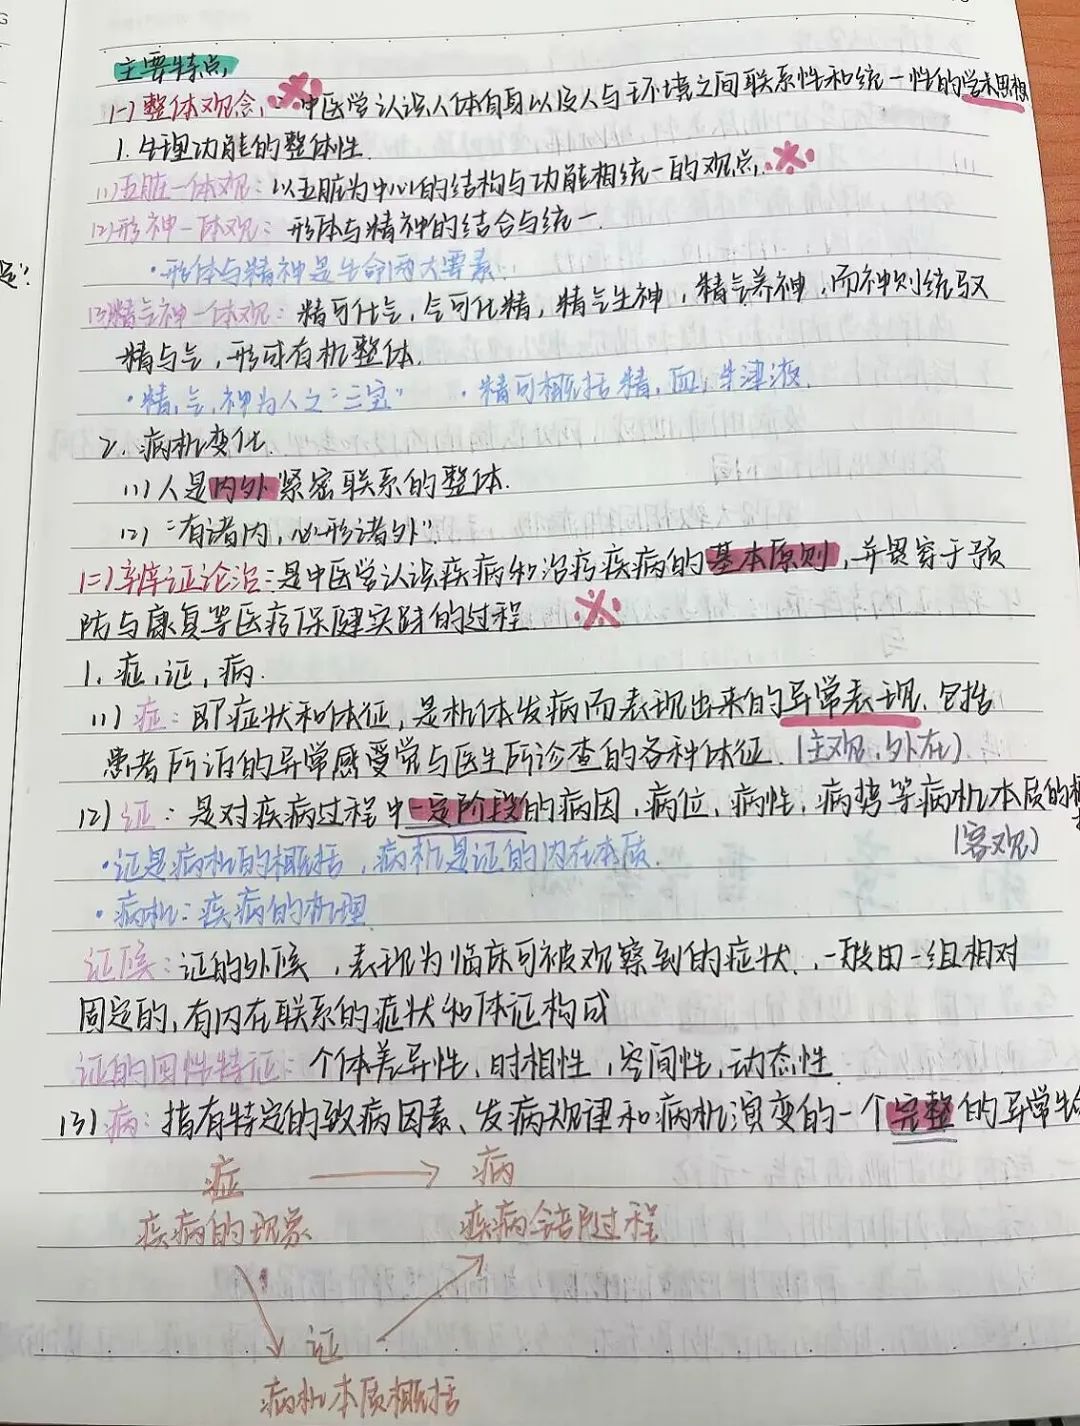 主要特点
(一)整体观念:中医学认识人体自身以及人与环境之间联系性和统一性的学术思想
1.生理功能的整体性.
(1)五脏一体观:以五脏为中心的结构与功能相统一的观点.
(2)形神一体观:形体与精神的结合与统一.
·形体与精神是生命两大要素.
(3)精气神一体观:精可化气,气可化精,精气生神,精气养神,而神则统驭
精与气,形成有机整体.
·精,气,神为人之"三宝" ·精可概括精,血,生津液.
2.病机变化.
(1)人是内外紧密联系的整体.
(2)"有诸内,必形诸外".
(二)辨证论治:是中医学认识疾病和治疗疾病的基本原则,并贯穿于预
防与康复等医疗保健实践的过程.
1.症,证,病.
(1)症:即症状和体征,是机体发病而表现出来的异常表现,包括
患者所诉的异常感受觉与医生所诊查的各种体征.(主观,外在)
(2)证:是对疾病过程中一定阶段的病因,病位,病性,病势等病机本质的
(客观)
·证是病机的概括,病机是证的内在本质.
·病机:疾病的机理.
证候:证的外候,表现为临床可被观察到的症状.一般由一组相对
固定的,有内在联系的症状和体征构成
证的四性特征:个体差异性,时相性,空间性,动态性
(3)病:指有特定的致病因素、发病规律和病机演变的一个完整的异常生命
症 → 病
疾病的现象 疾病全部过程
证
病机本质概括